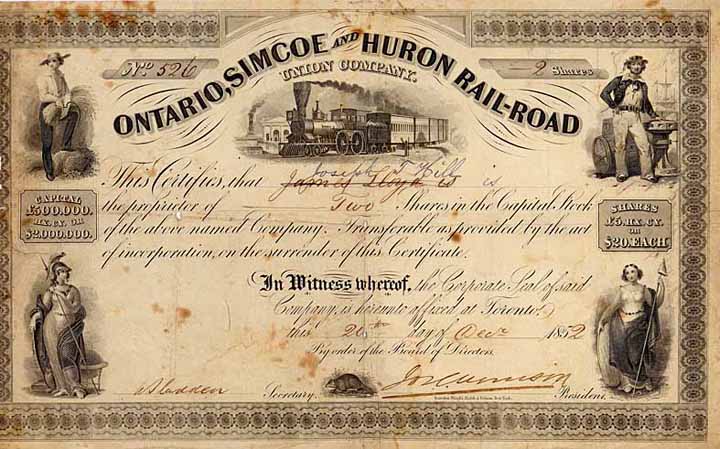 No 526
2 Shares
ONTARIO, SIMCOE AND HURON RAIL-ROAD
UNION COMPANY.
Joseph T Hill
This Certifies, that James Lloyd is is
the proprietor of Two Shares in the Capital Stock
of the above named Company. Transferable as provided by the act
of incorporation, on the surrender of this Certificate.
CAPITAL
£500,000.
HX. CY. OR
$2,000,000.
SHARES
£5. HX. CY.
OR
$20. EACH.
In Witness whereof, the Corporate Seal of said
Company, is hereunto affixed at Toronto
this 20th day of Decr 1852
By order of the Board of Directors.
Secretary.
President.